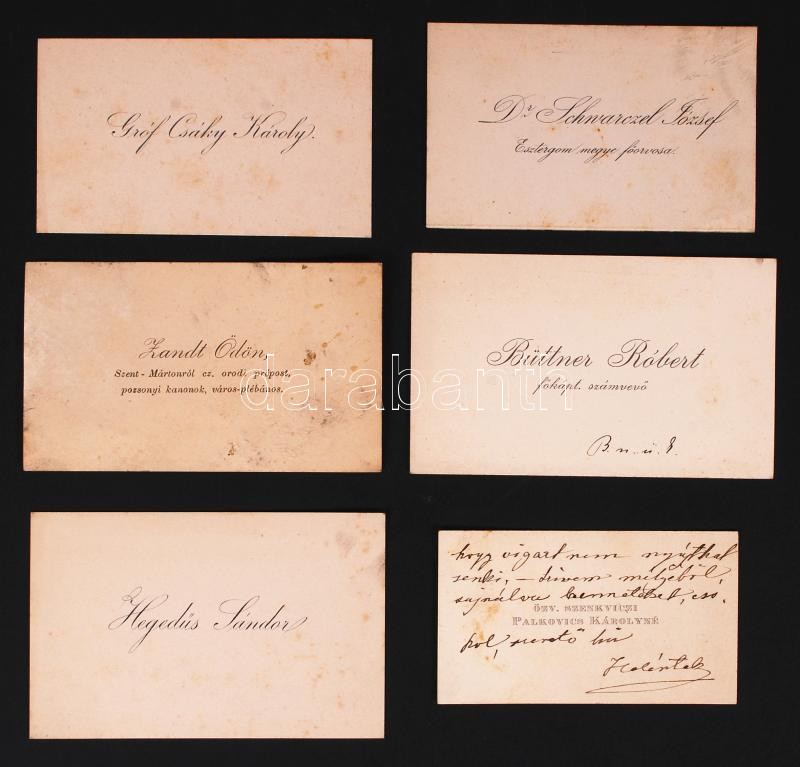 Gróf Csáky Károly.
Dr Schwarczel József
Esztergom megye főorvosa.
Zandt Ödön,
Szent-Mártonról cz. orodi prépost,
pozsonyi kanonok, város-plébános.
Büttner Róbert
főkápt. számvevő
B. n. ü. k.
Hegedűs Sándor
hogy vigart nem nyújthat
senki, — szivem mélyéből,
sajnálva benneteket, cso-
ÖZV. SZENKVICZI
PALKOVICS KÁROLYNÉ
kol, szerető hű
darabanth